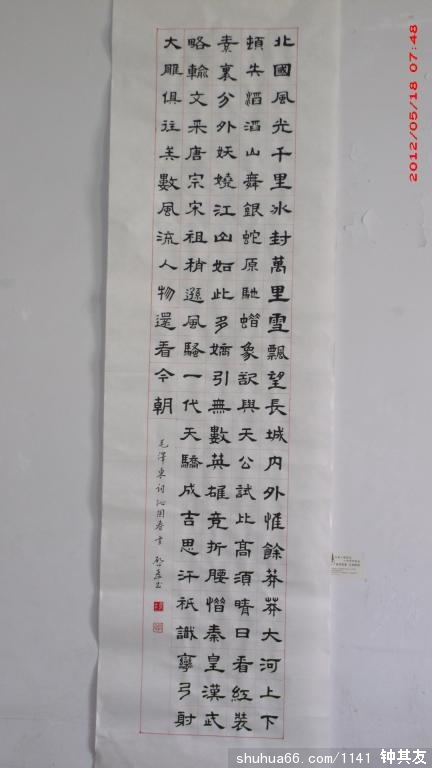 北國風光千里冰封萬里雪飄望長城内外惟餘莽莽大河上下
頓失滔滔山舞銀蛇原馳蜡象欲與天公試比髙須晴日看紅裝
素裹分外妖嬈江山如此多嬌引無數英雄竞折腰惜秦皇漢武
略輸文采唐宗宋祖稍遜風騷一代天驕成吉思汗衹識彎弓射
大雕俱往矣數風流人物還看今朝
毛澤東词沁園春雪
2012/05/18 07:48
shuhua66.com/1141 钟其友